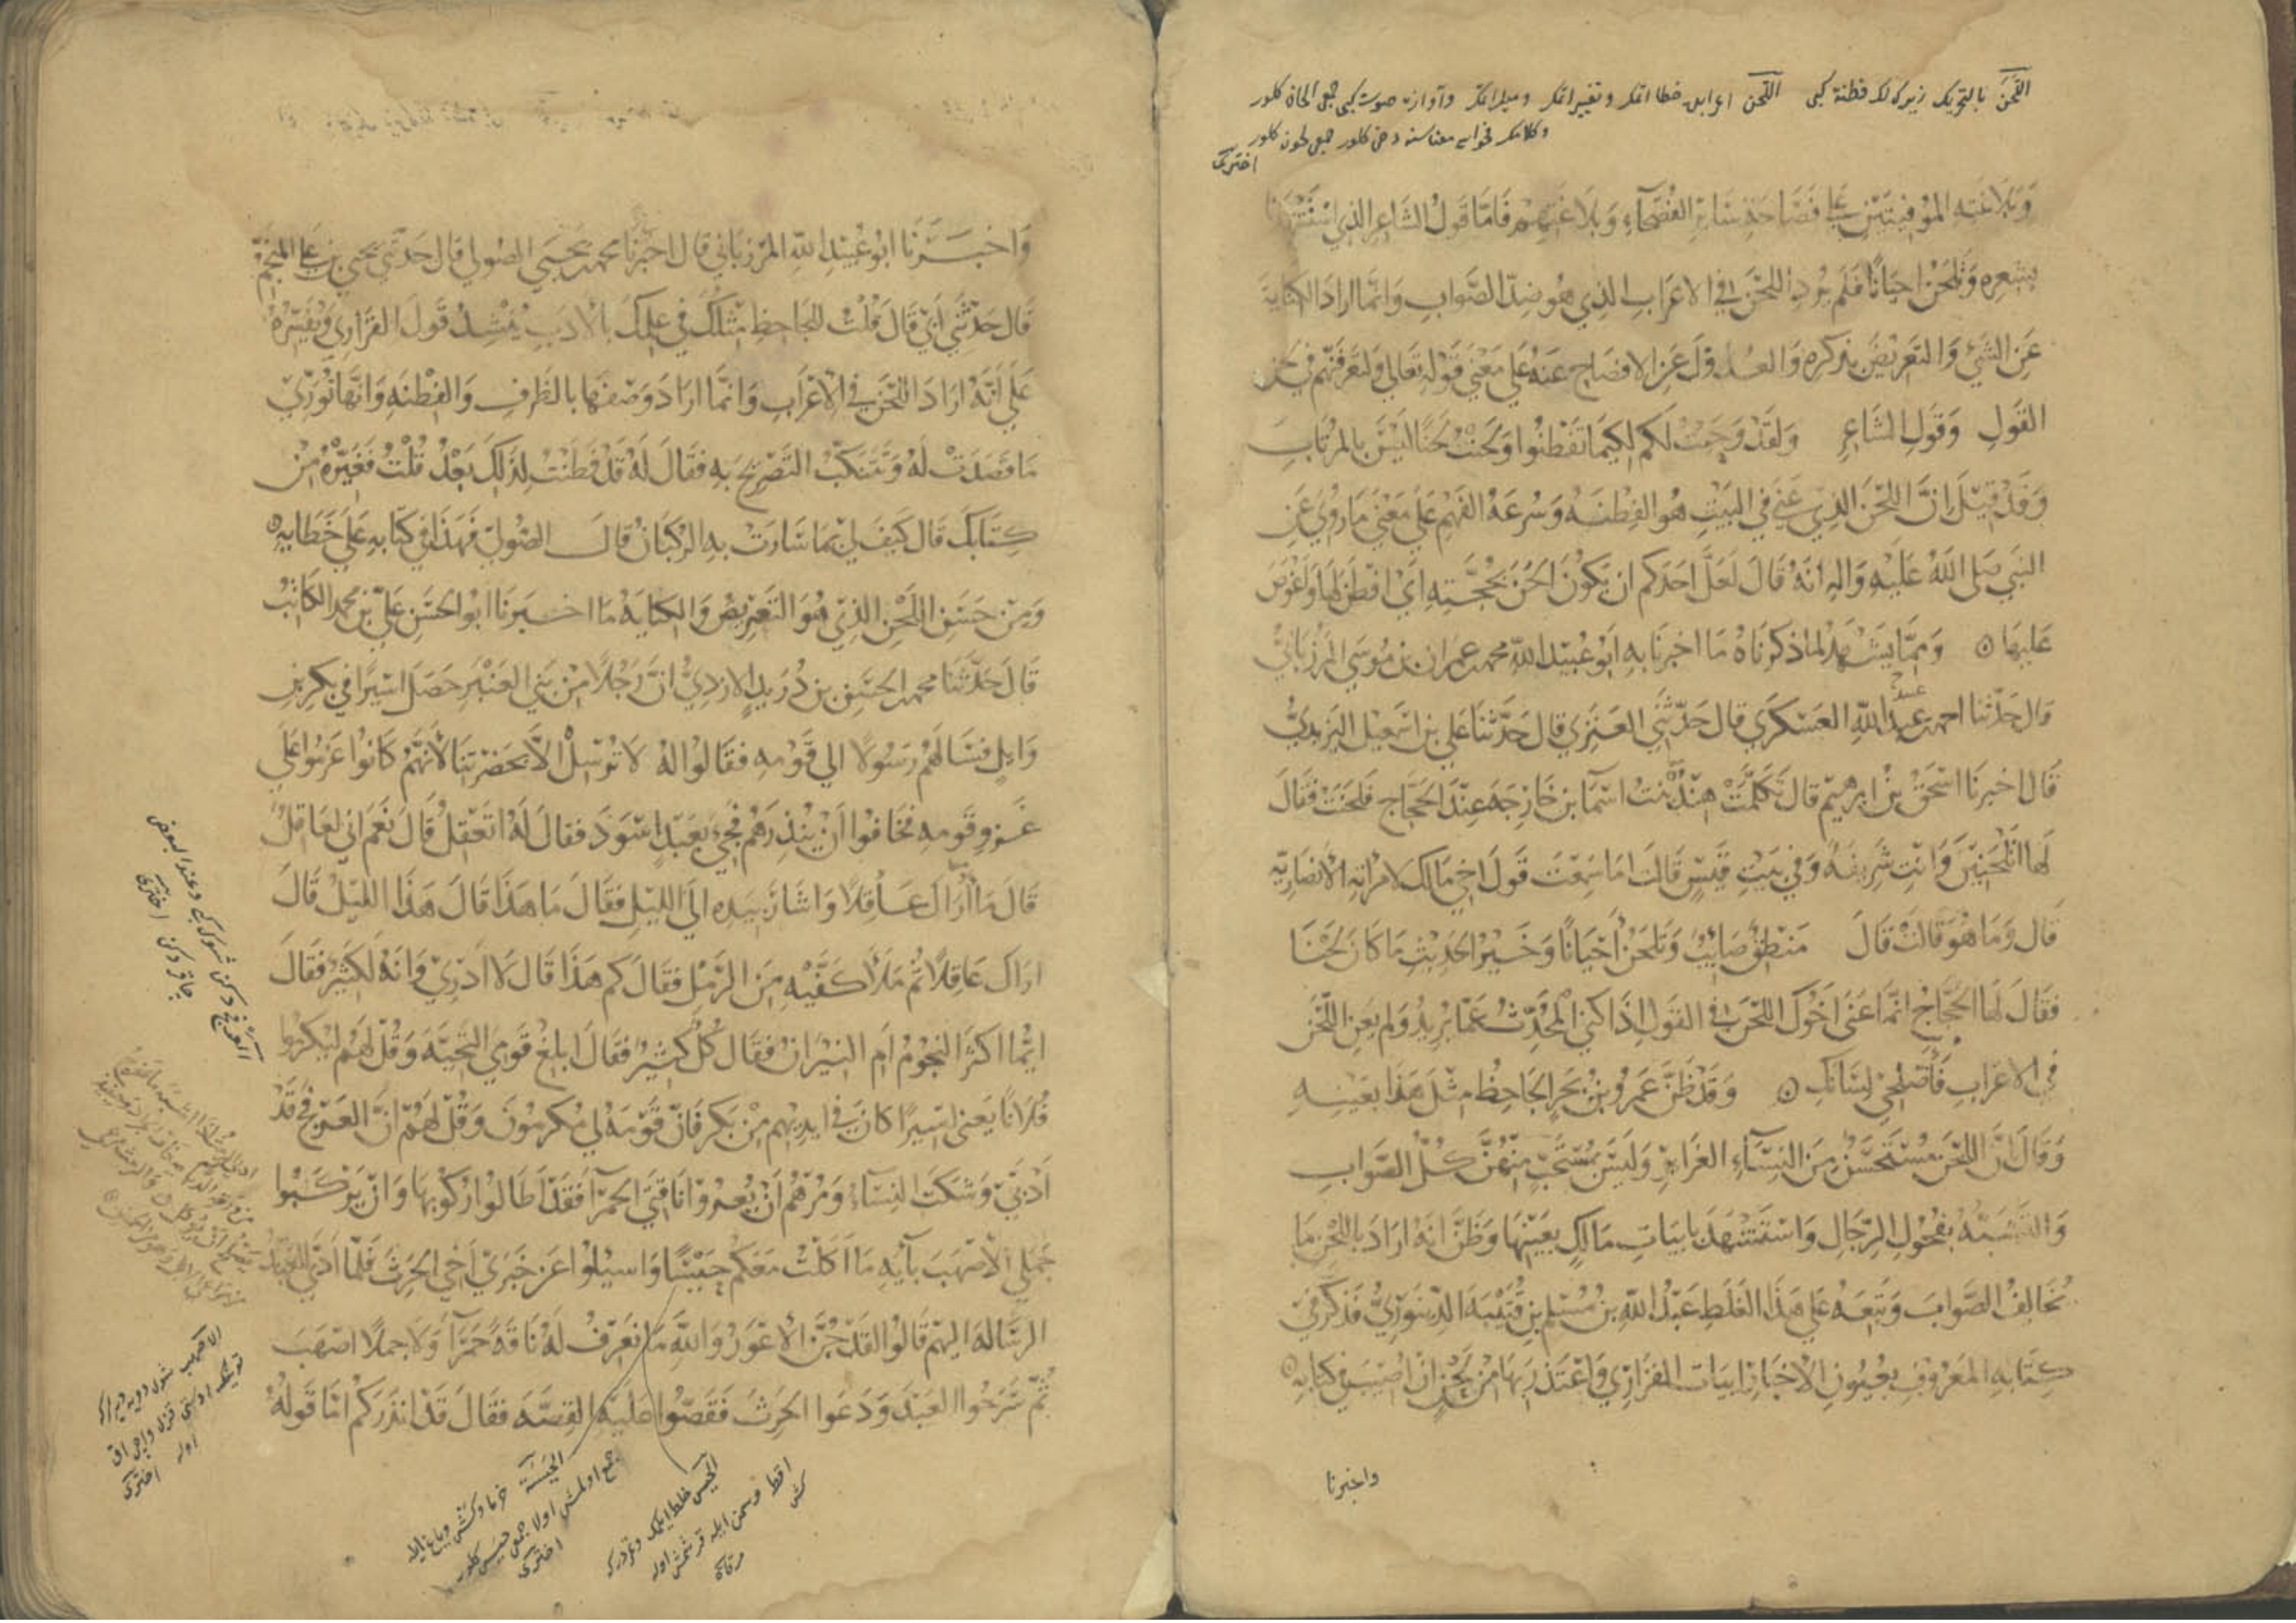 اللحن بالتحريك زيركلك فطنة كبى اللحن اعرابده خطا اتمك وتغيير اتمك وميل اتمك وآوازه صوت كبى جمع الحان كلور
وكلامك فحواسى معناسنه دخى كلور جمع لحون كلور
اخترى
وبلاغته الموفيتين على فصاحة سائر الفصحاء وبلاغتهم فاما قول الشاعر الذي استشهدنا
بشعره وتلحن احيانا فلم يرد اللحن في الاعراب الذي هو ضد الصواب وانما اراد الكناية
عن الشيء والتعريض بذكره والعدول عن الافصاح عنه على معنى قوله تعالى ولتعرفنهم في لحن
القول وقول الشاعر ولقد وحيت لكم لكيما تفطنوا ولحنت لحنا ليس بالمرتاب
وقد قيل ان اللحن الذي عني في البيت هو الفطنة وسرعة الفهم على معنى ما روي عن
النبي صلى الله عليه واله انه قال لعل احدكم ان يكون الحن بحجته اي افطن لها واغوص
عليها ۞ ومما يشهد لما ذكرناه ما اخبرنا به ابو عبيد الله محمد بن عمران بن موسى المرزباني
قال حدثنا احمد بن عبد الله العسكري قال حدثني العنزي قال حدثنا علي بن اسمعيل اليزيدي
قال اخبرنا اسحق بن ابرهيم قال تكلمت هند بنت اسما بن خارجة عند الحجاج فلحنت فقال
لها اتلحنين وانت شريفة وفي بيت قيس قالت اما سمعت قول اخي مالك لامراته الانصارية
قال وما هو قالت قال منطق صائب وتلحن احيانا وخير الحديث ما كان لحنا
فقال لها الحجاج انما عنى اخوك اللحن في القول اذا كنى المحدث عما يريد ولم يعن اللحن
في الاعراب فاصلحي لسانك ۞ وقد ظن عمرو بن بحر الجاحظ مثل هذا بعينه
وقال ان اللحن مستحسن من النساء الغرائر وليس بمستحب منهن كل الصواب
والتشبه بفحول الرجال واستشهد بابيات مالك بعينها وظن انه اراد باللحن ما
يخالف الصواب وتبعه على هذا الغلط عبد الله بن مسلم بن قتيبة الدينوري فذكر في
كتابه المعروف بعيون الاخبار ابيات الفزاري واعتذر بها من لحن ان اصيب في كتابه
واخبرنا
واخبرنا ابو عبيد الله المرزباني قال اخبرنا محمد بن يحيى الصولي قال حدثني يحيى بن علي المنجم
قال حدثني ابي قال قلت للجاحظ مثلك في علمك بالادب ينشد قول الفزاري ويفسره
على انه اراد اللحن في الاعراب وانما اراد وصفها بالظرف والفطنة وانها توري
ما قصدت له وتتنكب التصريح به فقال له قد فطنت لذلك بعد قلت فغيره من
كتابك قال كيف لي بما سارت به الركبان قال الصولي فهذا في كتابه على خطايه
ومن حسن اللحن الذي هو التعريض والكناية ما اخبرنا ابو الحسن علي بن محمد الكاتب
قال حدثنا محمد بن الحسن بن دريد الازدي ان رجلا من بني العنبر حصل اسيرا في بكر بن
وايل فسالهم رسولا الى قومه فقالوا له لا ترسل الا بحضرتنا لانهم كانوا عزموا على
غزو قومه فخافوا ان ينذرهم فجيء بعبد اسود فقال له اتعقل قال نعم اني لعاقل
قال ما اراك عاقلا واشار بيده الى الليل فقال ما هذا قال هذا الليل قال
اراك عاقلا ثم ملأ كفيه من الرمل فقال كم هذا قال لا ادري وانه لكثير فقال
ايما اكثر النجوم ام النيران فقال كل كثير فقال ابلغ قومي التحية وقل لهم ليكرموا
فلانا يعني اسيرا كان في ايديهم من بكر فان قومه لي مكرمون وقل لهم ان العرفج قد
ادبى وشكت النساء ومرهم ان يعروا ناقتي الحمرا فقد اطالوا ركوبها وان يركبوا
جملي الاصهب بآية ما اكلت معكم حيسا واسيلوا عن خبري اخي الحرث فلما ادى العبد
الرسالة اليهم قالوا لقد جن الاعور والله ما نعرف له ناقة حمرآ ولا جملا اصهب
ثم سرحوا العبد ودعوا الحرث فقصوا عليه القصة فقال قد انذركم اما قوله
العرفج دكن شوك كه وعند البعض
اخترى
الاصهب
اوله اخترى
الحيسة خرما وكش وياغ ايله
جمع اولمش اولا جمعى حيس كلور
اخترى
الحيس خلط ايلمك
اقط وسمن ايله قرشمش اوله
مرقاة